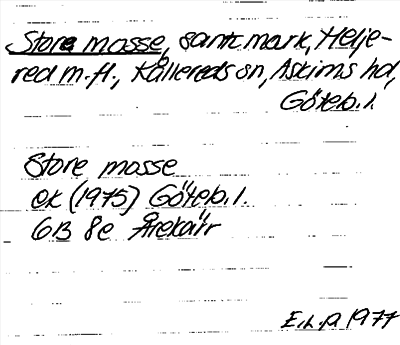 Store mosse, sankmark, Helje-
red m.fl., Kållereds sn, Askims hd,
Göteb. l.
Store mosse
ek (1975) Göteb. l.
6B 8e Årekärr
1977